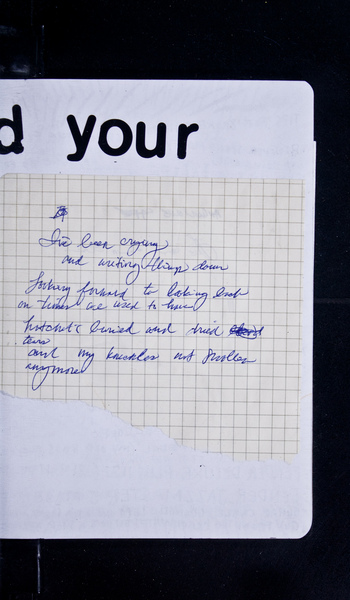 d your
I've been crying
and writing things down
Looking forward to looking back
on times we used to have
hatchets buried and dried
tears
and my knuckles not swollen
anymore